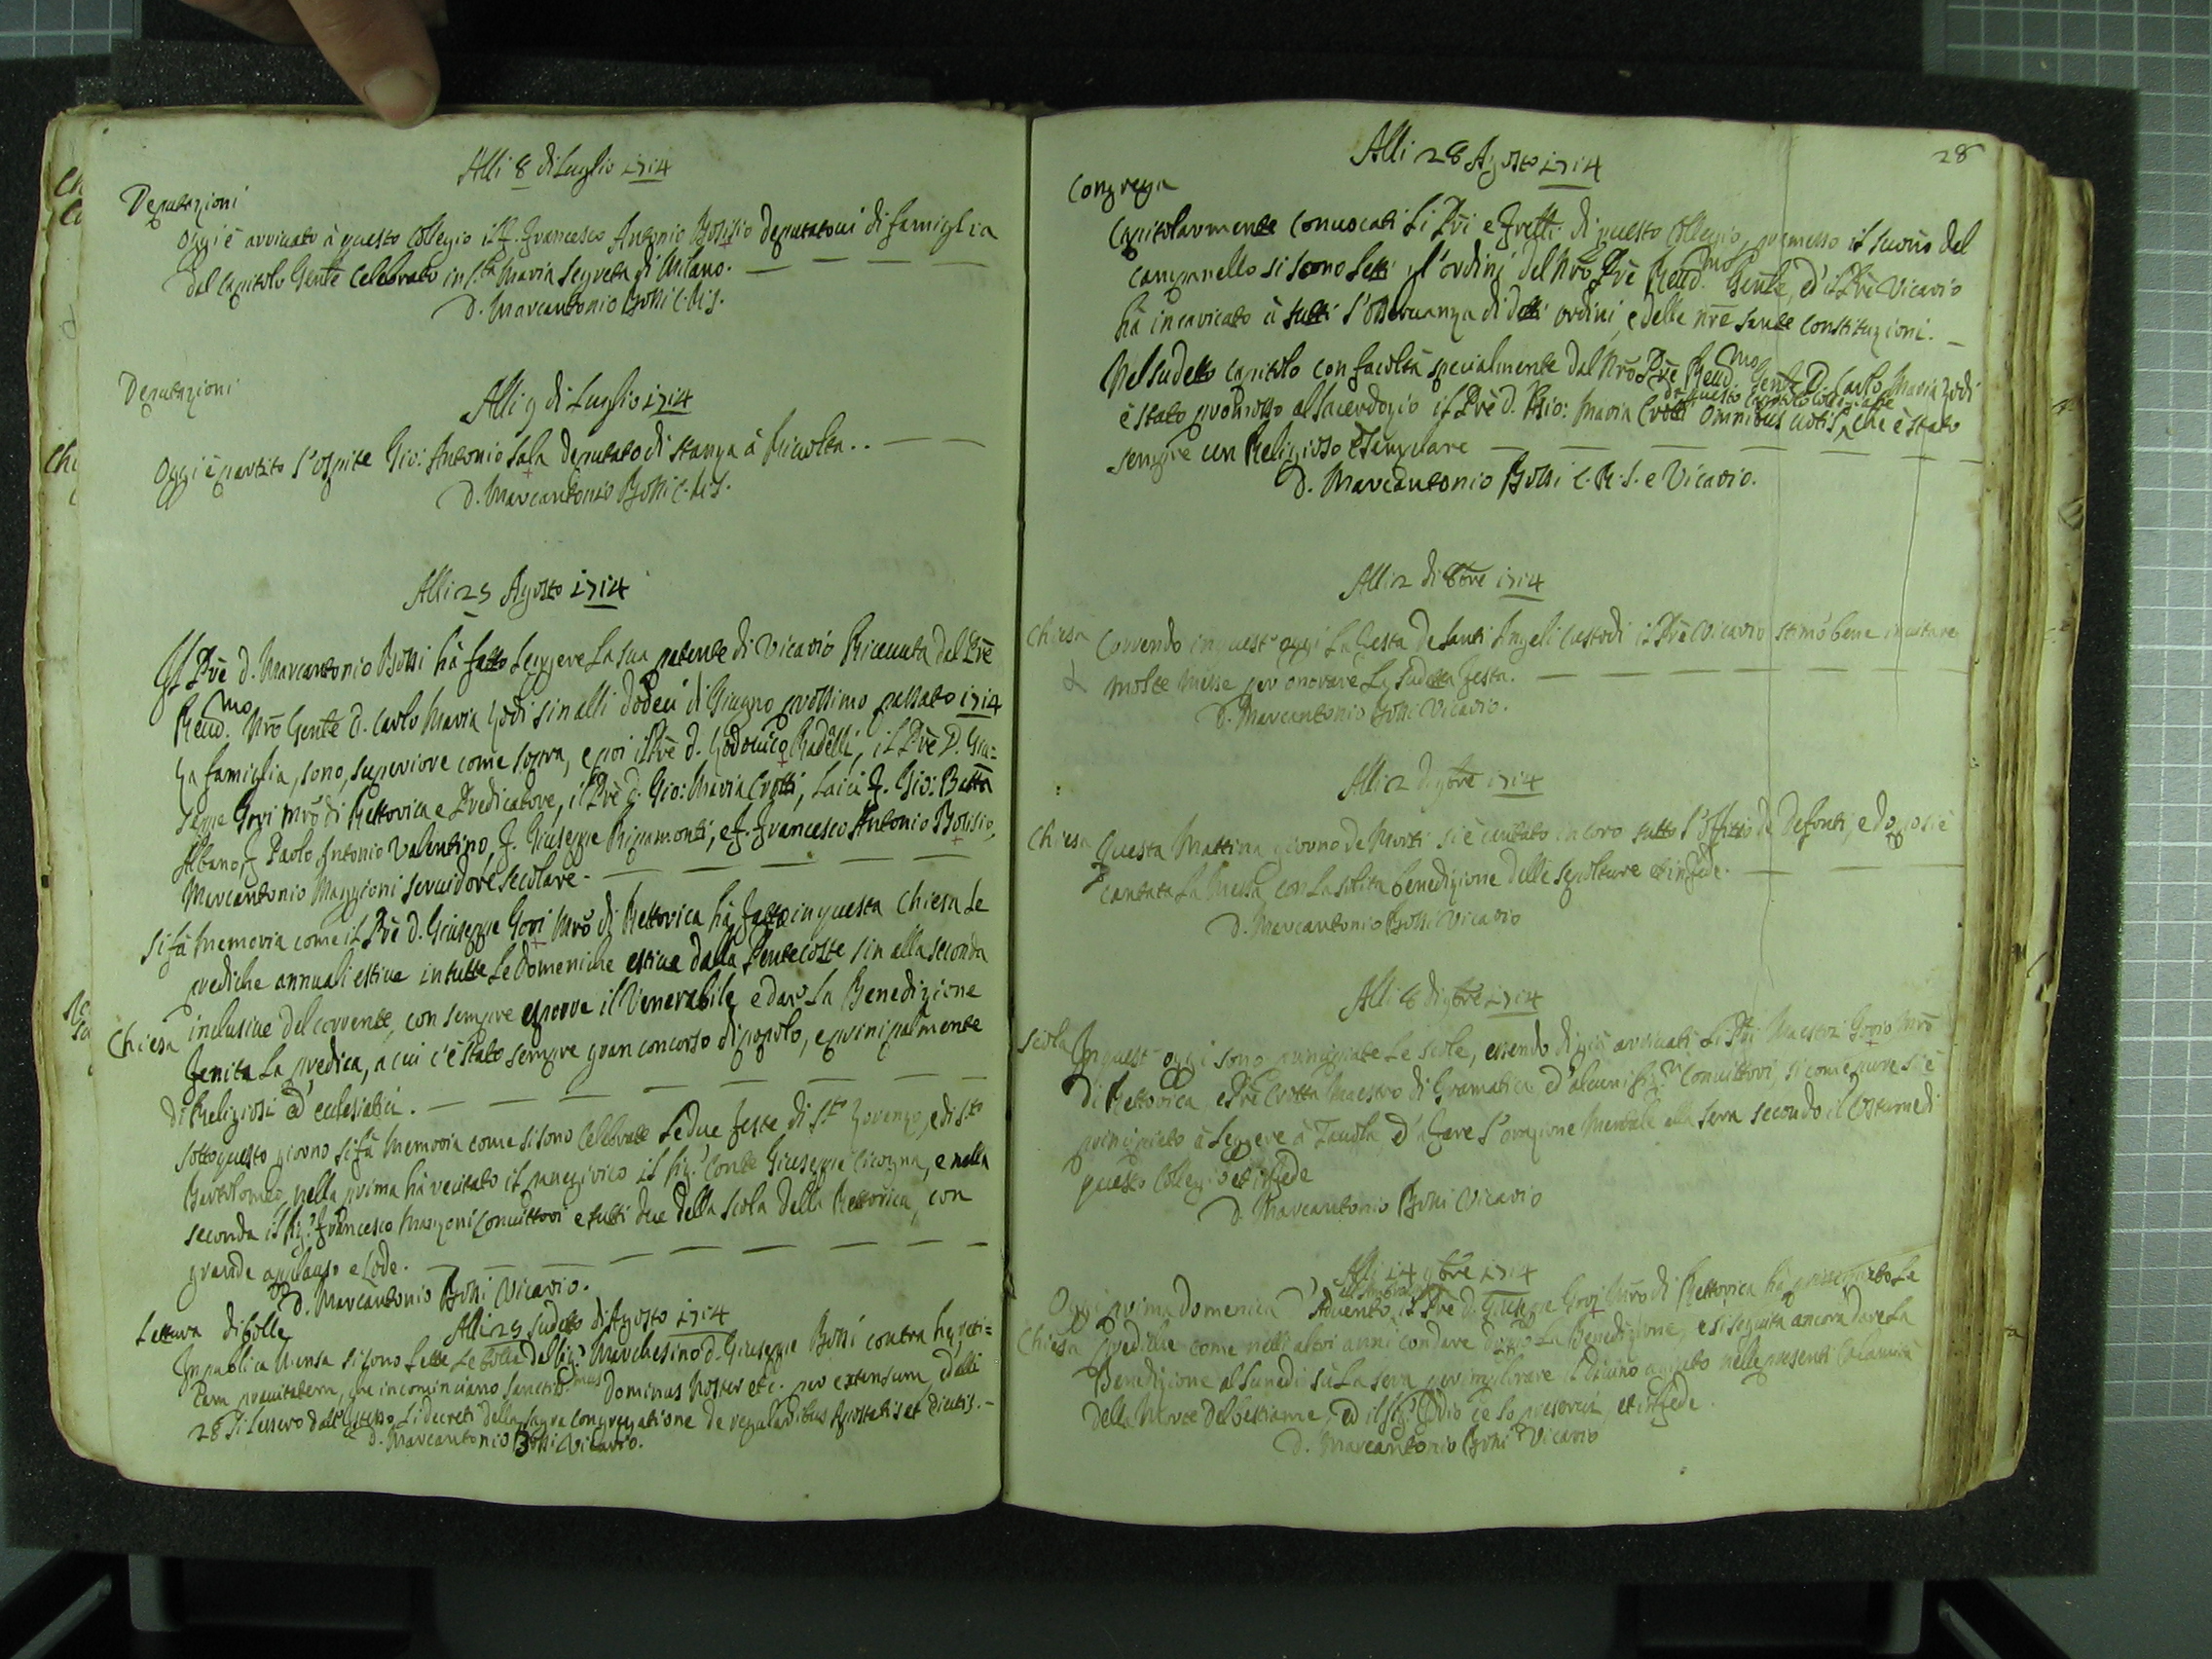 Alli 8 di Luglio 1714
Deputazioni
Oggi è arrivato à questo Collegio il f. Francesco Antonio Bosisio deputatoui di famiglia
dal Capitolo Gen̄te Celebrato in S.ta Maria Segreta di Milano.
D. Marcantonio Bossi C.R.S.
Deputazioni
Alli 9 di Luglio 1714
Oggi è partito l'ospite Gio: Antonio Sala deputato di stanza à Riuolta..
D. Marcantonio Bossi C.R.S.
Alli 25 Agosto 1714
Il Prē d. Marcantonio Bossi hà fatto leggere la sua patente di Vicario Riceuuta dal Prē
Reud.mo Nr̄o Gen̄te D. Carlo Maria Lodi sin alli dodeci di Giugno prossimo passato 1714
La famiglia, sono, superiore come sopra, e poi il Prē d. Lodouico Radelli, il Prē D. Giu=
seppe Gori Mrō di Rettorica e Predicatore, il Prē d. Gio: Maria Crotti, Laici f. Gio: Batt̄a
Albano, f. Paolo Antonio Valentino, f. Giuseppe Ripamonti, e f. Francesco Antonio Bosisio,
Marcantonio Maggioni seruidore secolare.
Si fà memoria come il Prē d. Giuseppe Gori Mrō di Rettorica hà fatto in questa Chiesa le
prediche annuali estiue in tutte le Domeniche estiue dalla Pentecoste sin alla seconda
inclusiue del corrente, con sempre esporre il Venerabile, e dar la Benedizione
Chiesa
fenita la predica, a cui c'è stato sempre gran concorso di popolo, e principalmente
di Religiosi ed' eclesiatici.
Sotto questo giorno si fà memoria come si sono Celebrate le due feste di S.to Lorenzo, e di S.to
Bartolomeo, nella prima hà recitato il panegirico il Sig.r Conte Giuseppe Cicogna, e nella
seconda il Sig.r Francesco Manzoni Conuittori e tutti due della Scola della Rettorica, con
grande applauso e Lode.
D. Marcantonio Bossi Vicario.
Lettura di bolle
Alli 25 sudetto di Agosto 1714
In publica Mensa si sono lette le bolle del Sig.r Marchesino d. Giuseppe Bossi contra hereti=
cam prauitatem, che incominciano Sanctiss.mus Dominus Noster etc. per extensum, e alli
28 si lessero dall' istesso li decreti della sagra congregatione de regularibus Apostatis et Eiectis.
D. Marcantonio Bossi Vicario.
28
Alli 28 Agosto 1714
Congrega
Capitolarmente Conuocati li Pr̄i e Fr̄elli di questo Collegio, premesso il suono del
campanello si sono letti gl'ordini del Nr̄o Prē Reud.mo Gen̄te, ed' il Prē Vicario
hà incaricato à tutti l'osseruanza di detti ordini, e delle nr̄e sante constituzioni.
Nel sudetto capitolo con facoltà specialmente dal Nr̄o Prē Reud.mo Gen̄te D. Carlo Maria Lodi
è stato promosso al sacerdozio il Prē d. Gio: Maria Crotti omnibus uotis, che è stato
da questo Capitolo Collegiale
sempre un Religioso Esemplare
D. Marcantonio Bossi C.R.S. e Vicario.
Alli 2 di 8bre 1714
Chiesa
Correndo in quest' oggi la festa de Santi Angeli Custodi il Prē Vicario stimò bene inuitare
molte messe per onorare la sudetta festa.
D. Marcantonio Bossi Vicario.
Alli 2 di 9bre 1714
Chiesa
Questa Mattina giorno de Morti si è cantato in coro tutto l'Offitio de Defonti, e doppo si è
cantata la Messa con la solita benedizione delle sepolture et in fede.
D. Marcantonio Bossi Vicario
Alli 8 di 9bre 1714
Scola
In quest' oggi sono principiate le scole, essendo di già arriuati li Pr̄i Maestri Gorio Mrō
di Rettorica, e Prē Crotta Maestro di Gramatica ed' alcuni Sig.ri Conuittori, si come pure si è
principiato à leggere à Tauola, ed' à fare l'orazione Mentale alla sera secondo il Costume di
questo Collegio et in fede
D. Marcantonio Bossi Vicario
Alli 14 9bre 1714
Chiesa
Oggi prima domenica d' Aduento, il Prē D. Giuseppe Gori Mrō di Rettorica hà principiato le
Prediche come nelli altri anni con dare doppo la Benedizione, e si seguita ancora dare la
Benedizione al lunedi sù la sera per implorare il diuino agiuto nelle presenti Calamità
della Morte del bestiame, ed il Sig.r Iddio ce lo preserui, et in fede.
D. Marcantonio Bossi Vicario